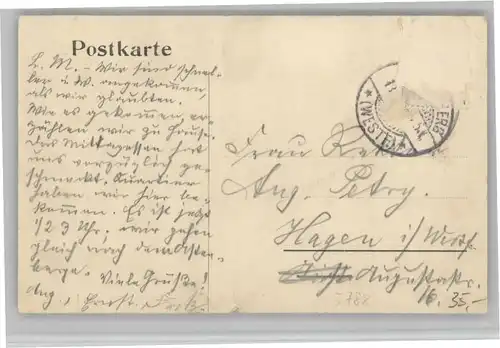 Postkarte
L. M. – Wir sind schnel-
ler i. W. angekommen,
als wir glaubten.
Wie es gekommen er-
zählen wir zu Hause.
Das Mittagessen hat
uns vorzüglich ge-
schmeckt. Quartier
haben wir hier be-
kommen. Es ist jetzt
1/2 3 Uhr. wir gehen
gleich nach dem Asten-
berge. Viele Grüße!
Aug. Ernst.
(WESTF.)
Frau
Aug. Petry.
Hagen i/Westf.
Augustastr.
16. 35,-